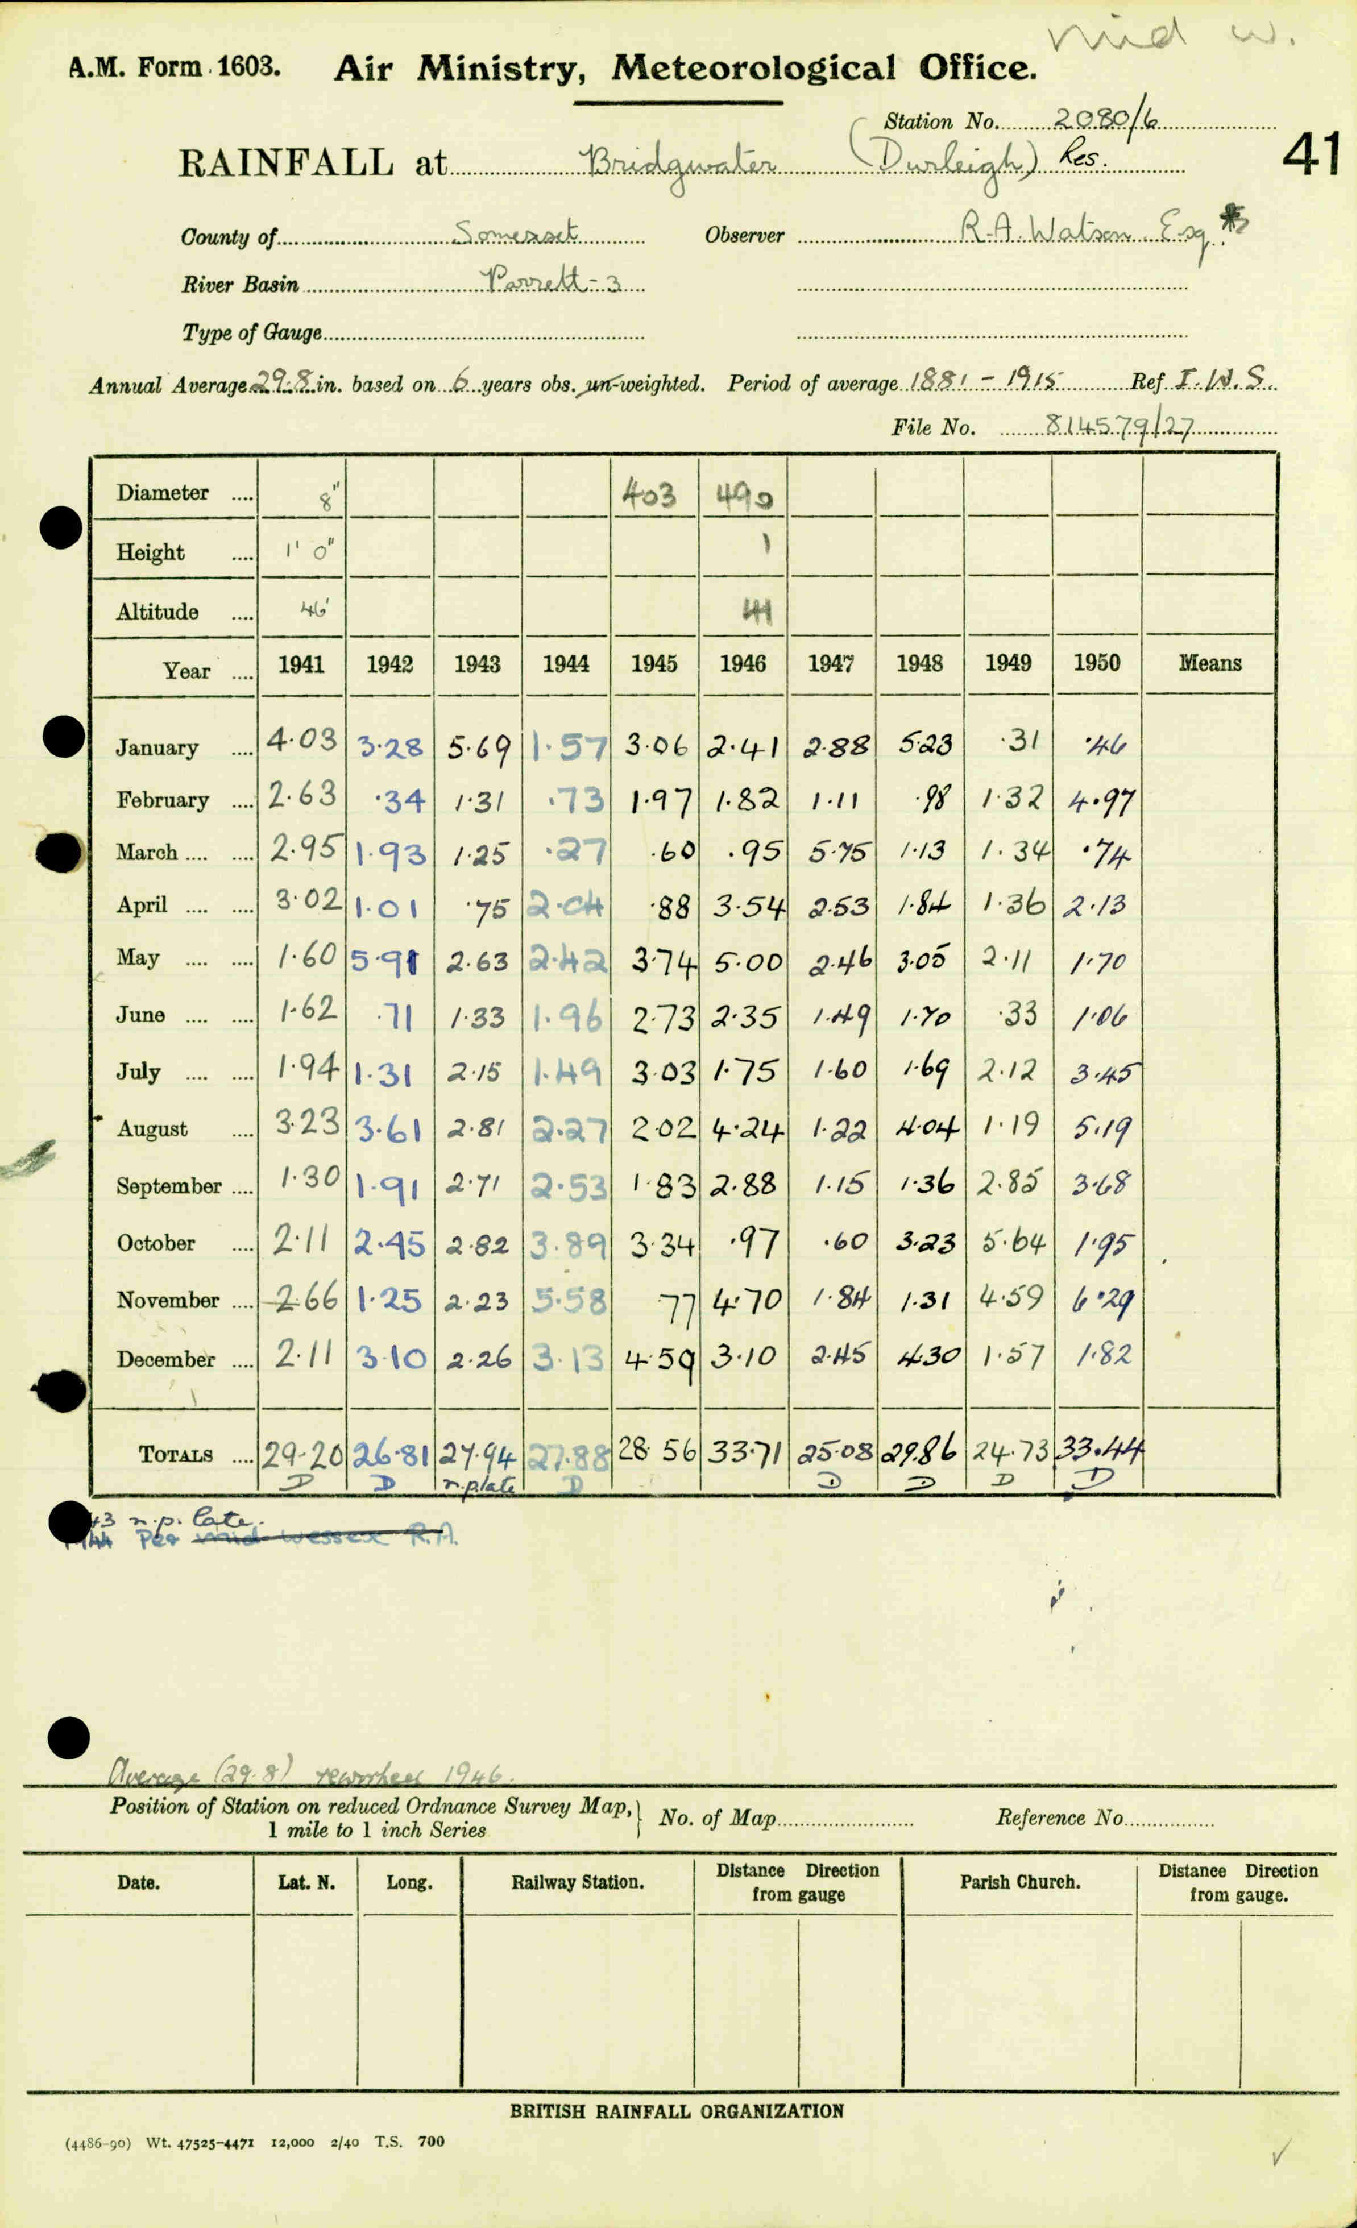 mid w.
A.M. Form 1603. Air Ministry, Meteorological Office.
Station No. 2080/6
RAINFALL at Bridgwater (Durleigh) Res. 41
County of Somerset Observer R.A. Watson Esq.
River Basin Parrett-3
Type of Gauge
Annual Average 29.8 in. based on 6 years obs. un-weighted. Period of average 1881 - 1915 Ref I.W.S.
File No. 814579/27
Diameter .... 8" 403 490
Height .... 1' 0" 1
Altitude .... 46' 41
Year .... 1941 1942 1943 1944 1945 1946 1947 1948 1949 1950 Means
January .... 4.03 3.28 5.69 1.57 3.06 2.41 2.88 5.23 .31 .46
February .... 2.63 .34 1.31 .73 1.97 1.82 1.11 .98 1.32 4.97
March .... .... 2.95 1.93 1.25 .27 .60 .95 5.75 1.13 1.34 .74
April .... .... 3.02 1.01 .75 2.04 .88 3.54 2.53 1.84 1.36 2.13
May .... .... 1.60 5.91 2.63 2.42 3.74 5.00 2.46 3.05 2.11 1.70
June .... .... 1.62 .71 1.33 1.96 2.73 2.35 1.49 1.70 .33 1.06
July .... .... 1.94 1.31 2.15 1.49 3.03 1.75 1.60 1.69 2.12 3.45
August .... 3.23 3.61 2.81 2.27 2.02 4.24 1.22 4.04 1.19 5.19
September .... 1.30 1.91 2.71 2.53 1.83 2.88 1.15 1.36 2.85 3.68
October .... 2.11 2.45 2.82 3.89 3.34 .97 .60 3.23 5.64 1.95
November .... 2.66 1.25 2.23 5.58 .77 4.70 1.84 1.31 4.59 6.29
December .... 2.11 3.10 2.26 3.13 4.59 3.10 2.45 4.30 1.57 1.82
TOTALS .... 29.20 26.81 27.94 27.88 28.56 33.71 25.08 29.86 24.73 33.44
D D n.plate D D D D D
43 n.p. late.
1944 Per mid wessex R.A.
Average (29.8) reworked 1946.
Position of Station on reduced Ordnance Survey Map, 1 mile to 1 inch Series } No. of Map Reference No
Date. Lat. N. Long. Railway Station. Distance Direction from gauge Parish Church. Distance Direction from gauge.
BRITISH RAINFALL ORGANIZATION
(4486-90) Wt. 47525-4471 12,000 2/40 T.S. 700